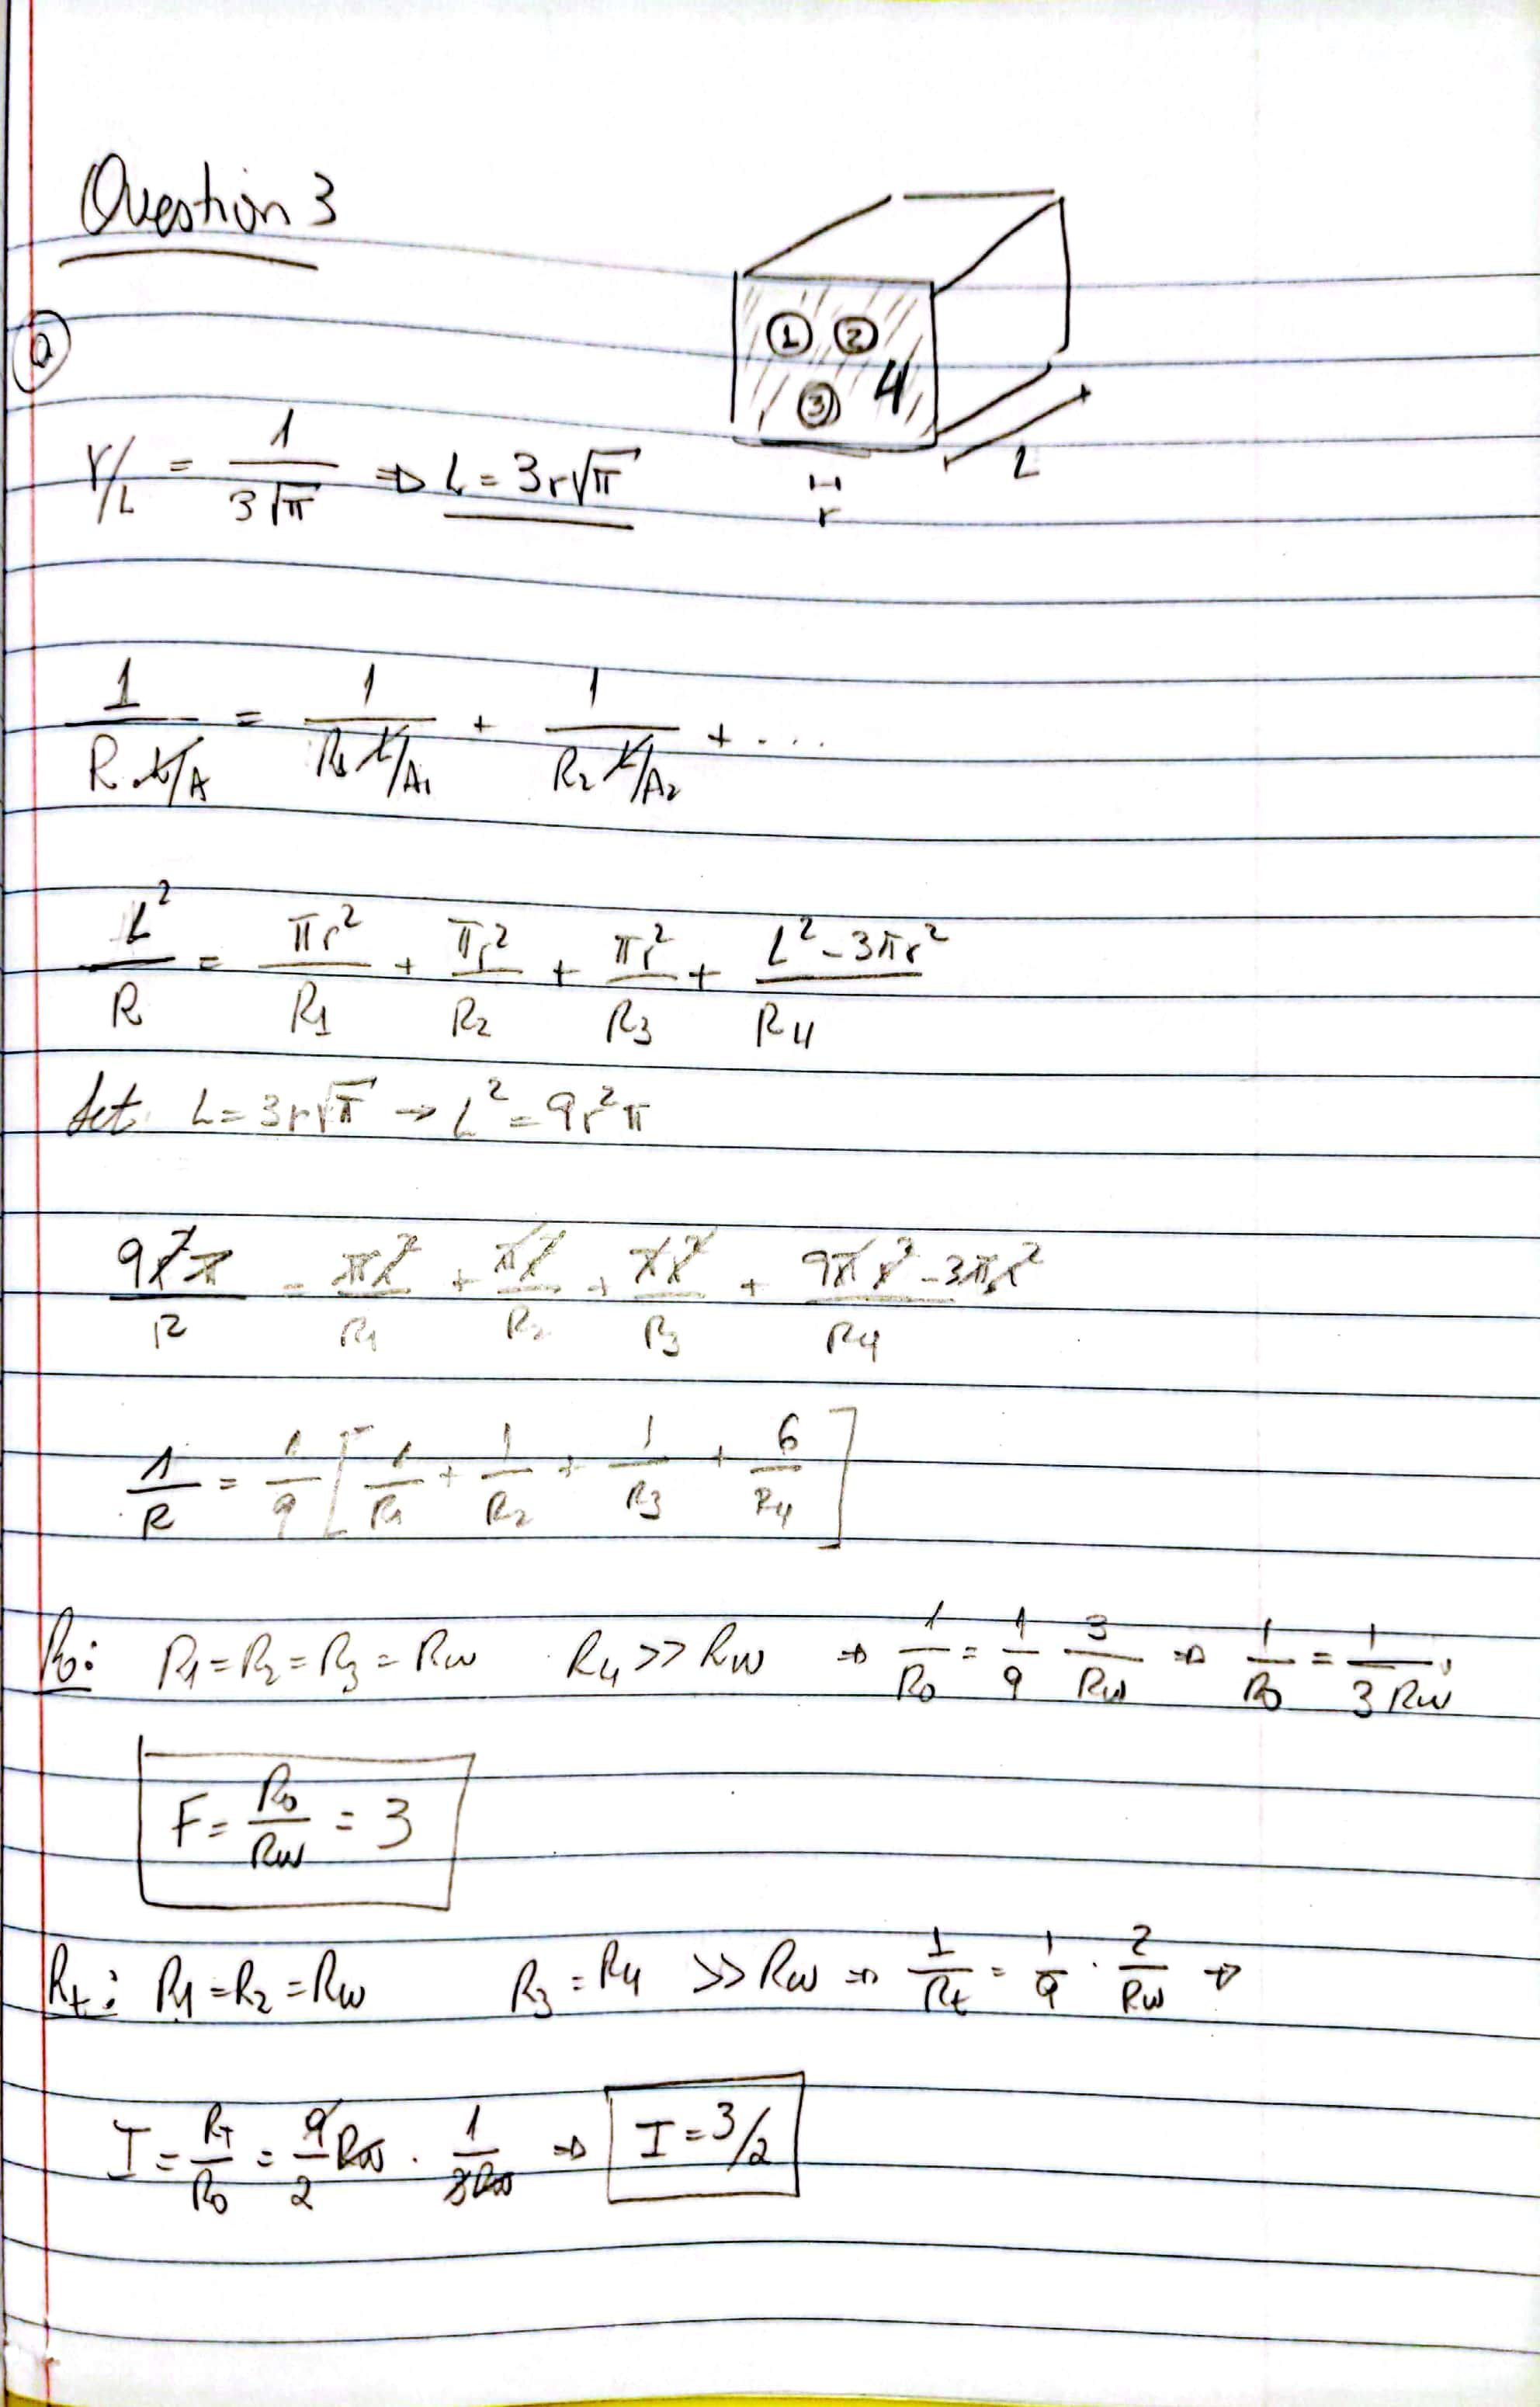 Question 3
① ②
③ 4
L
r
a
r/L = 1/(3√π) ⇒ L = 3r√π
1/(R·L/A) = 1/(R1 L/A1) + 1/(R2 L/A2) + ...
L²/R = πr²/R1 + πr²/R2 + πr²/R3 + (L² - 3πr²)/R4
Set L = 3r√π → L² = 9r²π
9r²π/R = πr²/R1 + πr²/R2 + πr²/R3 + (9πr² - 3πr²)/R4
1/R = 1/9 [1/R1 + 1/R2 + 1/R3 + 6/R4]
Ro: R1 = R2 = R3 = Rw R4 >> Rw ⇒ 1/Ro = 1/9 3/Rw ⇒ 1/Ro = 1/(3Rw)
F = Ro/Rw = 3
Rt: R1 = R2 = Rw R3 = R4 >> Rw ⇒ 1/Rt = 1/9 · 2/Rw ⇒
I = RT/Ro = 9/2 Rw · 1/(3Rw) ⇒ I = 3/2